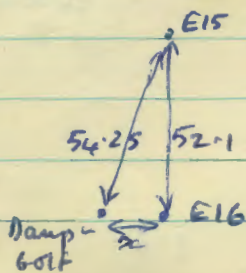 E15
54.25 52.1
E16
Damp-
x
bolt